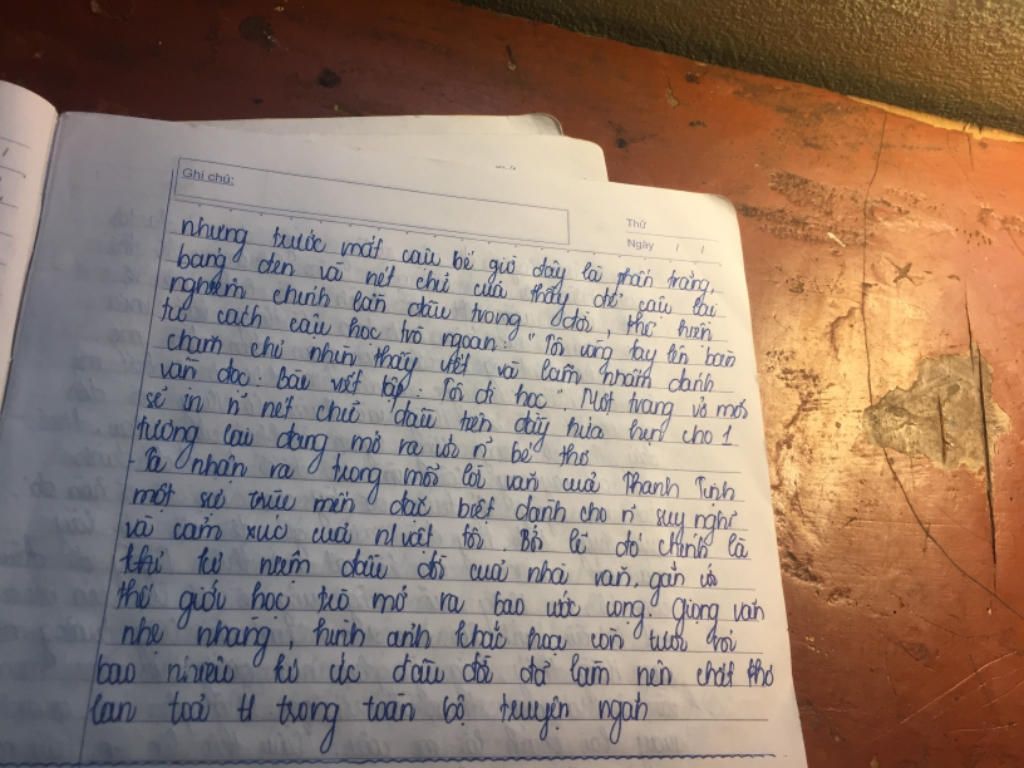 Ghi chú:
Thứ
Ngày / /
nhưng trước mắt cậu bé giờ đây là phấn trắng,
bảng đen và nét chữ của thầy để cậu lại
nghiêm chỉnh lần đầu trong đời, thể hiện
tư cách cậu học trò ngoan: "Tôi vòng tay lên bàn
chăm chỉ nhìn thầy viết và lẩm nhẩm đánh
vần đọc: Bài viết tập: Tôi đi học". Một trang vở mới
sẽ in n~ nét chữ đầu tiên đầy hứa hẹn cho 1
tương lai đang mở ra với n~ bé thơ
- Ta nhận ra trong mỗi lời văn của Thanh Tịnh
một sự trìu mến đặc biệt dành cho n~ suy nghĩ
và cảm xúc của n/vật tôi. Bởi lẽ đó chính là
kỉ niệm đầu đời của nhà văn, gắn với
thế giới học trò mở ra bao ước vọng. Giọng văn
nhẹ nhàng, hình ảnh khắc hoạ còn tươi rói
bao nhiêu kí ức đầu đời đã làm nên chất thơ
lan toả trong toàn bộ truyện ngắn